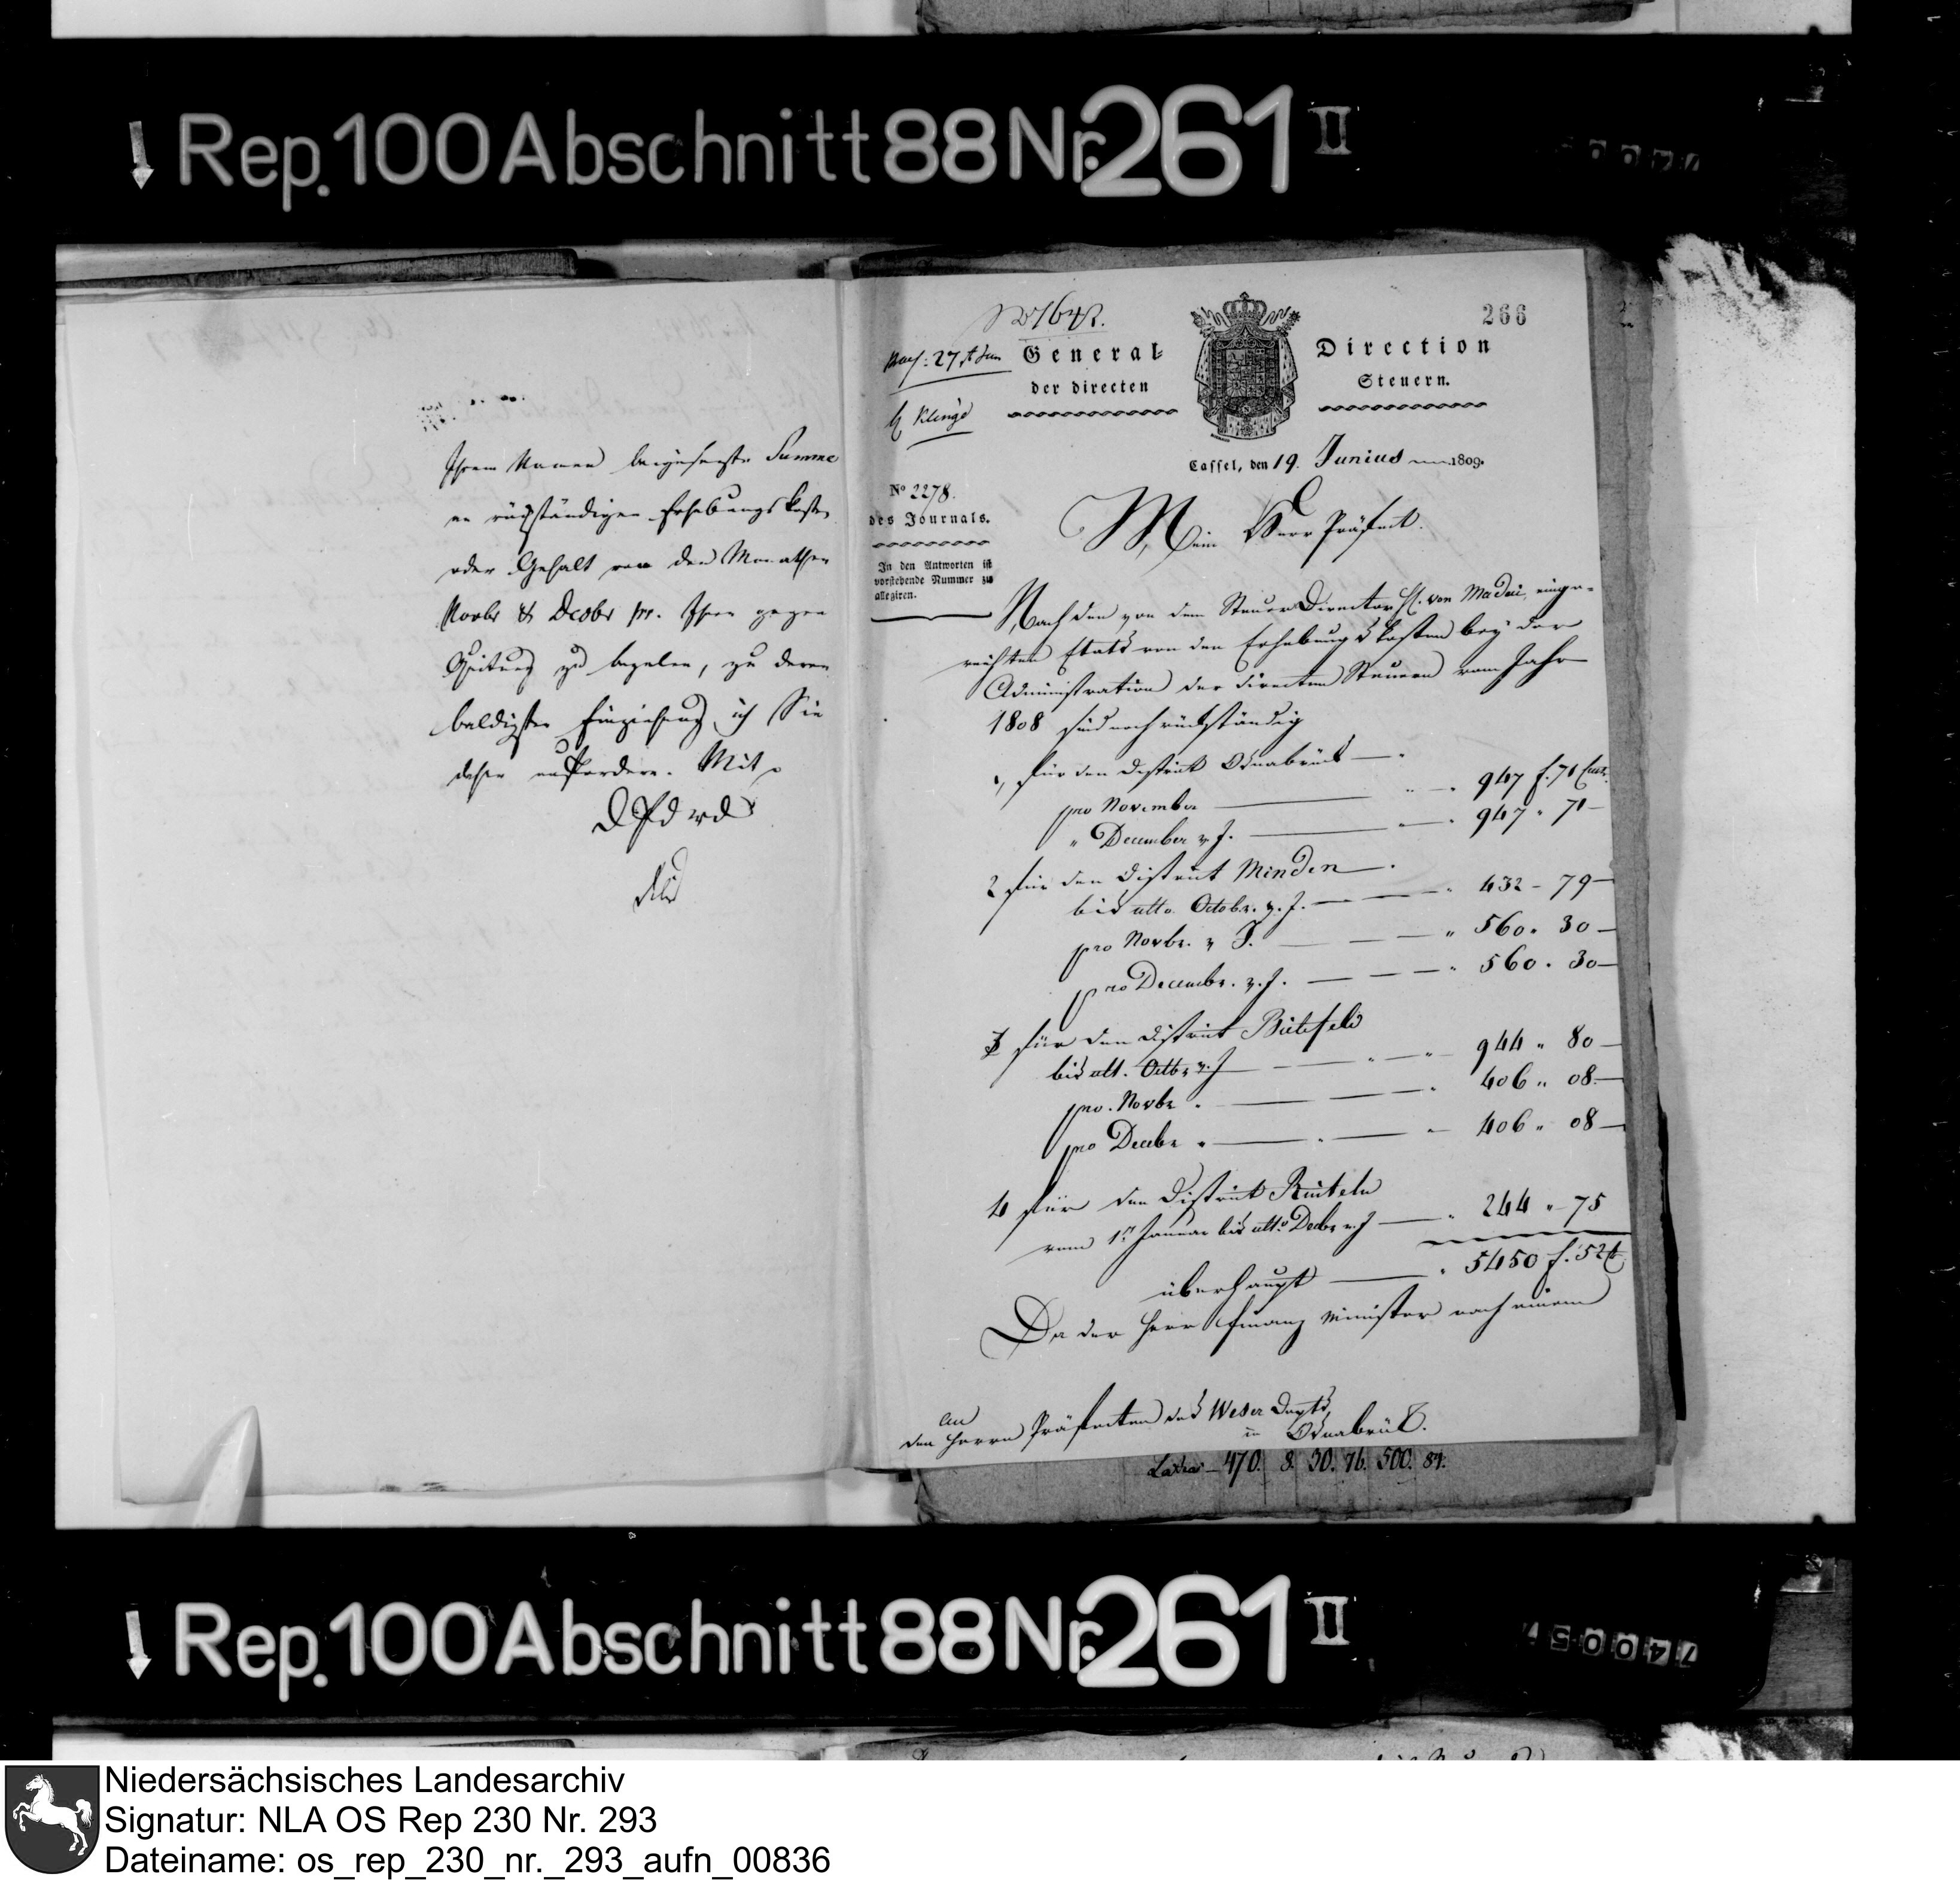 Rep. 100 Abschnitt 88 Nr. 261 II
Ihrem Namen beygesetzte Summe
an rückständigen Erhebungskosten
oder Gehalt von den Monathen
Novbr & Decbr pr. Ihnen gegen
Quitung zu bezalen, zu deren
baldigsten Einziehung ich Sie
daher auffordere. Mit
D Pf d W D
266
praes. 27t Jun
Klinge
General-Direction
der directen Steuern.
Cassel, den 19. Junius 1809.
No 2278.
des Journals.
In den Antworten ist
vorstehende Nummer zu
allegiren.
Mein Herr Präfect.
Nach den von dem Steuer Director H. von Madei einge-
reichten Etats von den Erhebungskosten bey der
Administration der directen Steuern vom Jahr
1808 sind noch rückständig
1, für den District Osnabrück
pro November 947 f. 71 Cent.
" December v. J. 947 " 71
2 für den District Minden
bis ulto. Octobr. v. J. 432 - 79
pro Novbr. v J. 560 " 30
pro Decembr. v. J. 560 " 30
3 für den District Bielefeld
bis ult. Octbr v. J 944 " 80
pro. Novbr " 406 " 08
pro Decbr " 406 " 08
4 für den District Rinteln
vom 1n Januar bis ulto Decbr v. J 244 " 75
überhaupt 5450 f. 52 Ct
Da der Herr Finanz Minister nach einem
An
den Herrn Präfecten des Weser Depts
in Osnabrück.
Latus 470. 8. 30. 76. 500. 84.
Rep. 100 Abschnitt 88 Nr. 261 II
Niedersächsisches Landesarchiv
Signatur: NLA OS Rep 230 Nr. 293
Dateiname: os_rep_230_nr._293_aufn_00836